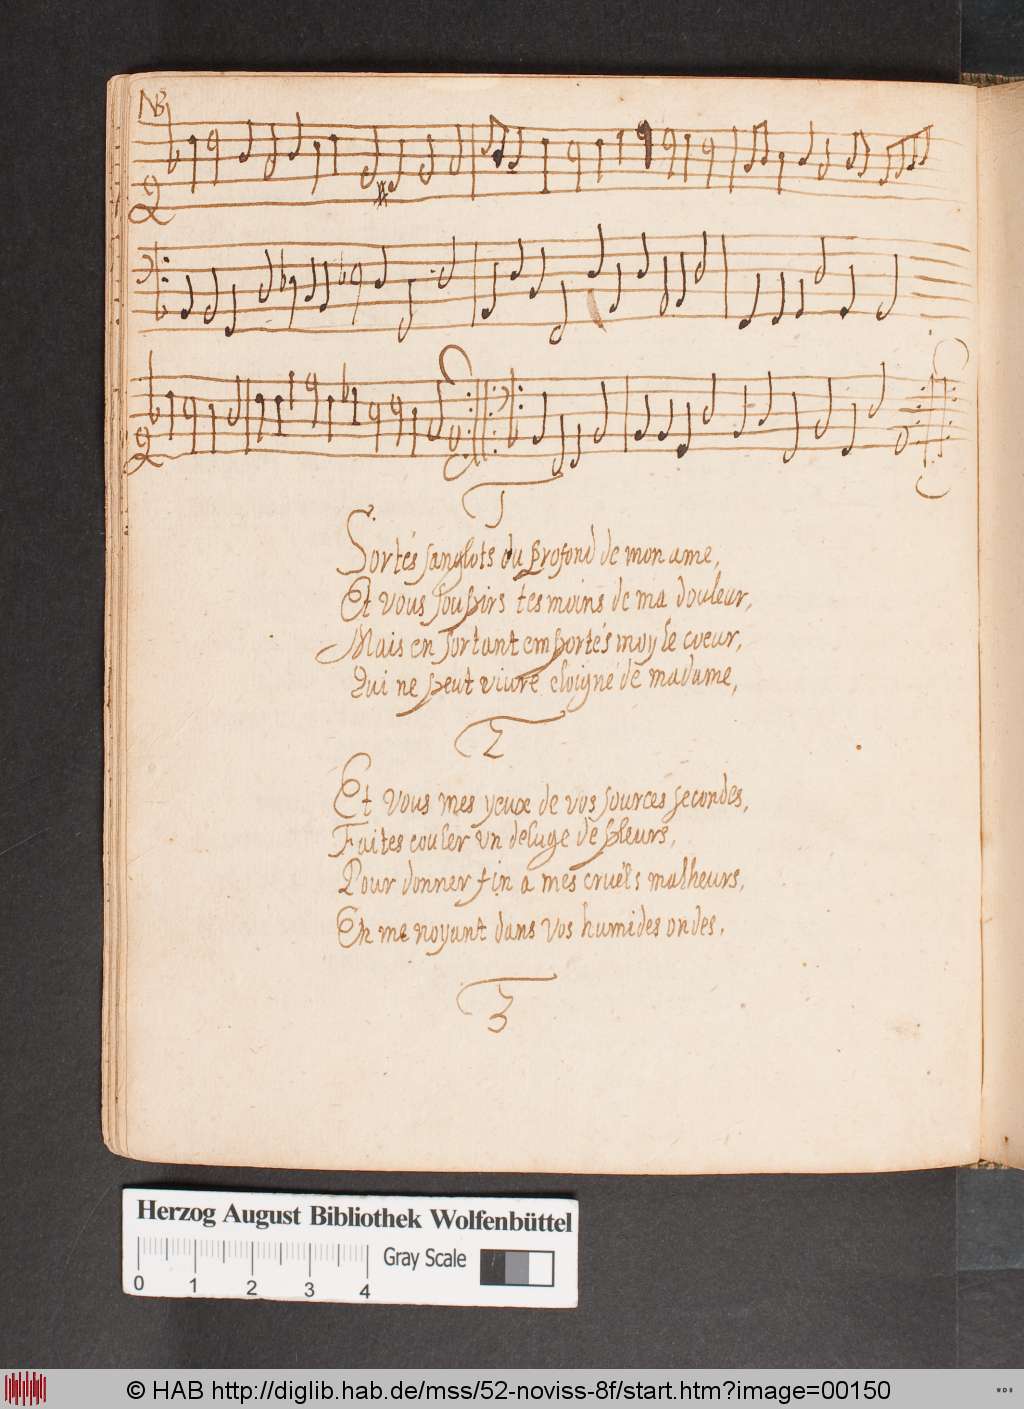 NB
1
Sortés sanglots du profond de mon ame,
Et vous soupirs tesmoins de ma douleur,
Mais en sortant emportés moy le coeur,
Qui ne peut vivre eloigné de madame,
2
Et vous mes yeux de vos sources secondes,
Faites couler un deluge de pleurs,
Pour donner fin a mes cruëls malheurs,
En me noyant dans vos humides ondes.
3
Herzog August Bibliothek Wolfenbüttel
Gray Scale
0 1 2 3 4
© HAB http://diglib.hab.de/mss/52-noviss-8f/start.htm?image=00150